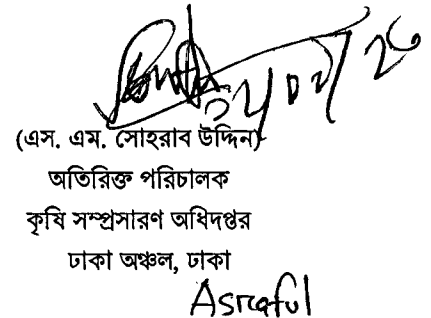 (এস. এম. সোহরাব উদ্দিন)
অতিরিক্ত পরিচালক
কৃষি সম্প্রসারণ অধিদপ্তর
ঢাকা অঞ্চল, ঢাকা
Asraful